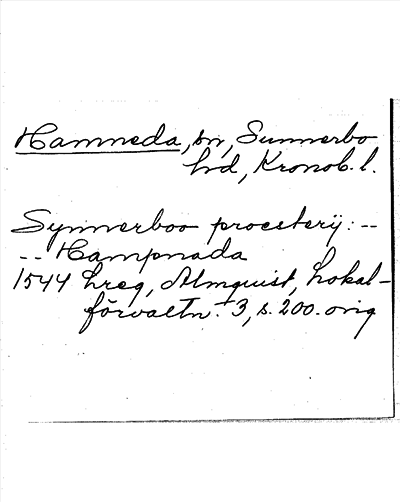 Hamneda, sn, Sunnerbo
hd, Kronob. l.
Synnerboo proesterij: --
-- Hampnada
1544 Lreg, Almquist, Lokal-
förvaltn. 3, s. 200. orig